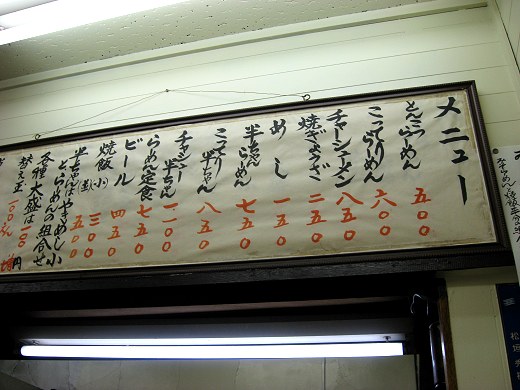 メニュー
とんこつらーめん 五〇〇
こってりらーめん 六〇〇
チャーシューメン 八五〇
焼ぎょうざ 二五〇
めし 一五〇
半ちゃんらーめん 七五〇
こってり半ちゃん 八五〇
チャシュー半ちゃん 一一〇〇
らーめん定食 七五〇
ビール 四五〇
焼飯(小) 三〇〇
五〇〇
半ちゃんはやきめし小
とらーめんの組合せ
各種大盛は一〇〇円
替え玉一〇〇円